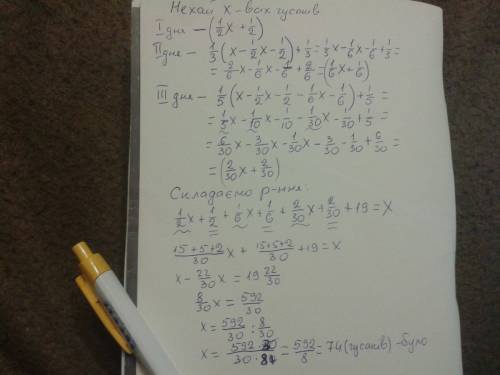 Нехай x - всіх гусенів
I дня — (1/2 x + 1/2)
II дня - 1/3 (x - 1/2 x - 1/2) + 1/3 = 1/3 x - 1/6 x - 1/6 + 1/3 =
= 2/6 x - 1/6 x - 1/6 + 2/6 = (1/6 x + 1/6)
III дня - 1/5 (x - 1/2 x - 1/2 - 1/6 x - 1/6) + 1/5 =
= 1/5 x - 1/10 x - 1/10 - 1/30 x - 1/30 + 1/5 =
= 6/30 x - 3/30 x - 1/30 x - 3/30 - 1/30 + 6/30 =
= (2/30 x + 2/30)
Складаємо р-ння:
1/2 x + 1/2 + 1/6 x + 1/6 + 2/30 x + 2/30 + 19 = x
15+5+2/30 x + 15+5+2/30 + 19 = x
x - 22/30 x = 19 22/30
8/30 x = 592/30
x = 592/30 : 8/30
x = 592·30/30·8 = 592/8 = 74 (гусенів) - було